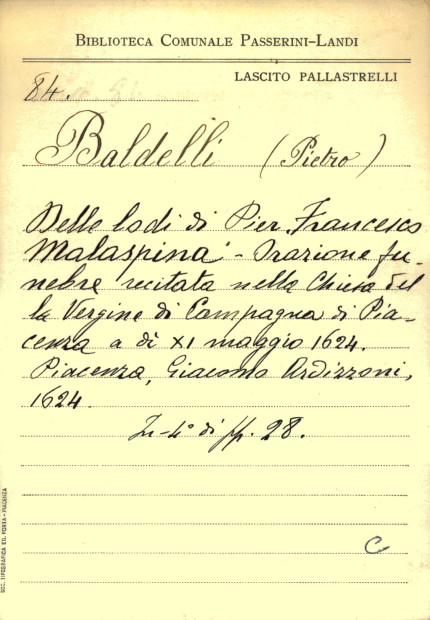 BIBLIOTECA COMUNALE PASSERINI-LANDI
LASCITO PALLASTRELLI
84.
Baldelli (Pietro)
Delle lodi di Pier Francesco
Malaspina - Orazione fu-
nebre recitata nella Chiesa del
la Vergine di Campagna di Pia-
cenza a dì XI maggio 1624.
Piacenza, Giacomo Ardizzoni,
1624.
In-4° di pp. 28.
C
SOC. TIPOGRAFICA ED. PORTA - PIACENZA